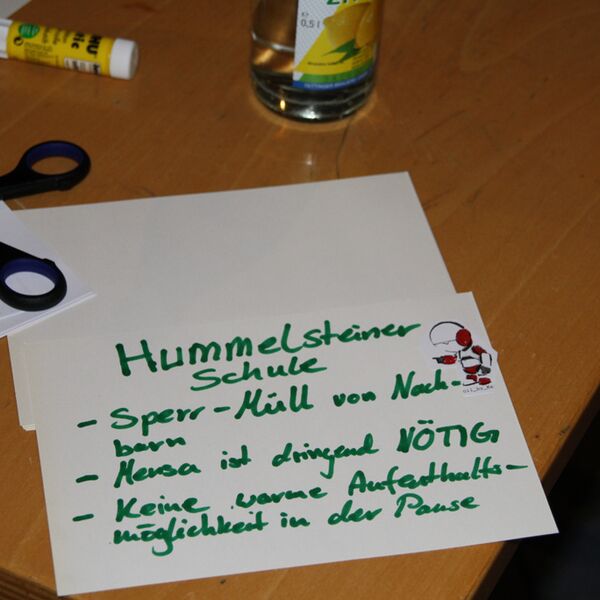 0,5l
Hummelsteiner
Schule
- Sperr-Müll von Nach-
barn
- Mensa ist dringend NÖTIG
- Keine warme Aufenthalts-
möglichkeit in der Pause